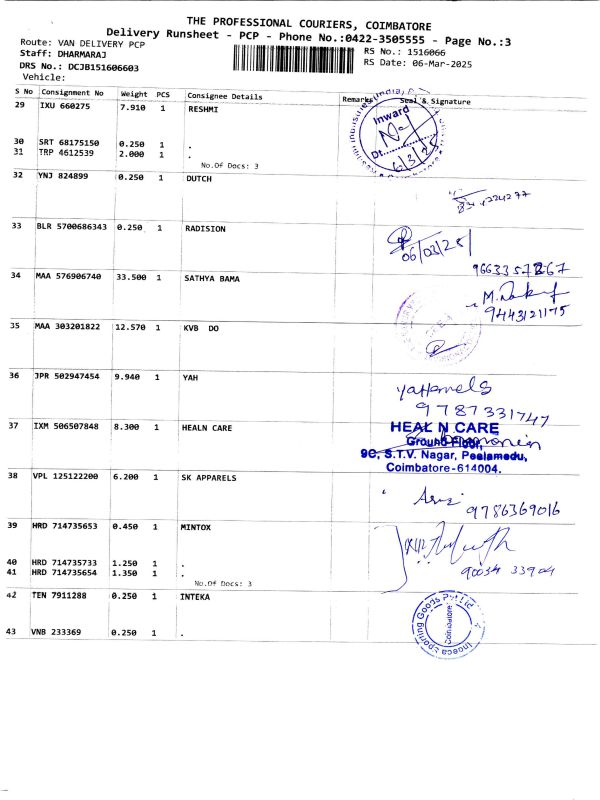 THE PROFESSIONAL COURIERS, COIMBATORE
Delivery Runsheet - PCP - Phone No.:0422-3505555 - Page No.:3
Route: VAN DELIVERY PCP
RS No.: 1516066
Staff: DHARMARAJ
RS Date: 06-Mar-2025
DRS No.: DCJB151606603
Vehicle:
S No Consignment No Weight PCS Consignee Details Remarks Seal & Signature
29 IXU 660275 7.910 1 RESHMI
Inward
Dt. 6/3/25
30 SRT 68175150 0.250 1 .
31 TRP 4612539 2.000 1 .
No.Of Docs: 3
32 YNJ 824899 0.250 1 DUTCH
33 BLR 5700686343 0.250 1 RADISION
06/03/25
34 MAA 576906740 33.500 1 SATHYA BAMA
9443121175
35 MAA 303201822 12.570 1 KVB DO
36 JPR 502947454 9.940 1 YAH
9787331747
37 IXM 506507848 8.300 1 HEALN CARE
HEAL N CARE
Ground Floor,
9C, S.T.V. Nagar, Peelamedu,
Coimbatore-614004.
38 VPL 125122200 6.200 1 SK APPARELS
9786369016
39 HRD 714735653 0.450 1 MINTOX
40 HRD 714735733 1.250 1 .
41 HRD 714735654 1.350 1 .
No.Of Docs: 3
42 TEN 7911288 0.250 1 INTEKA
Coimbatore
43 VNB 233369 0.250 1 .